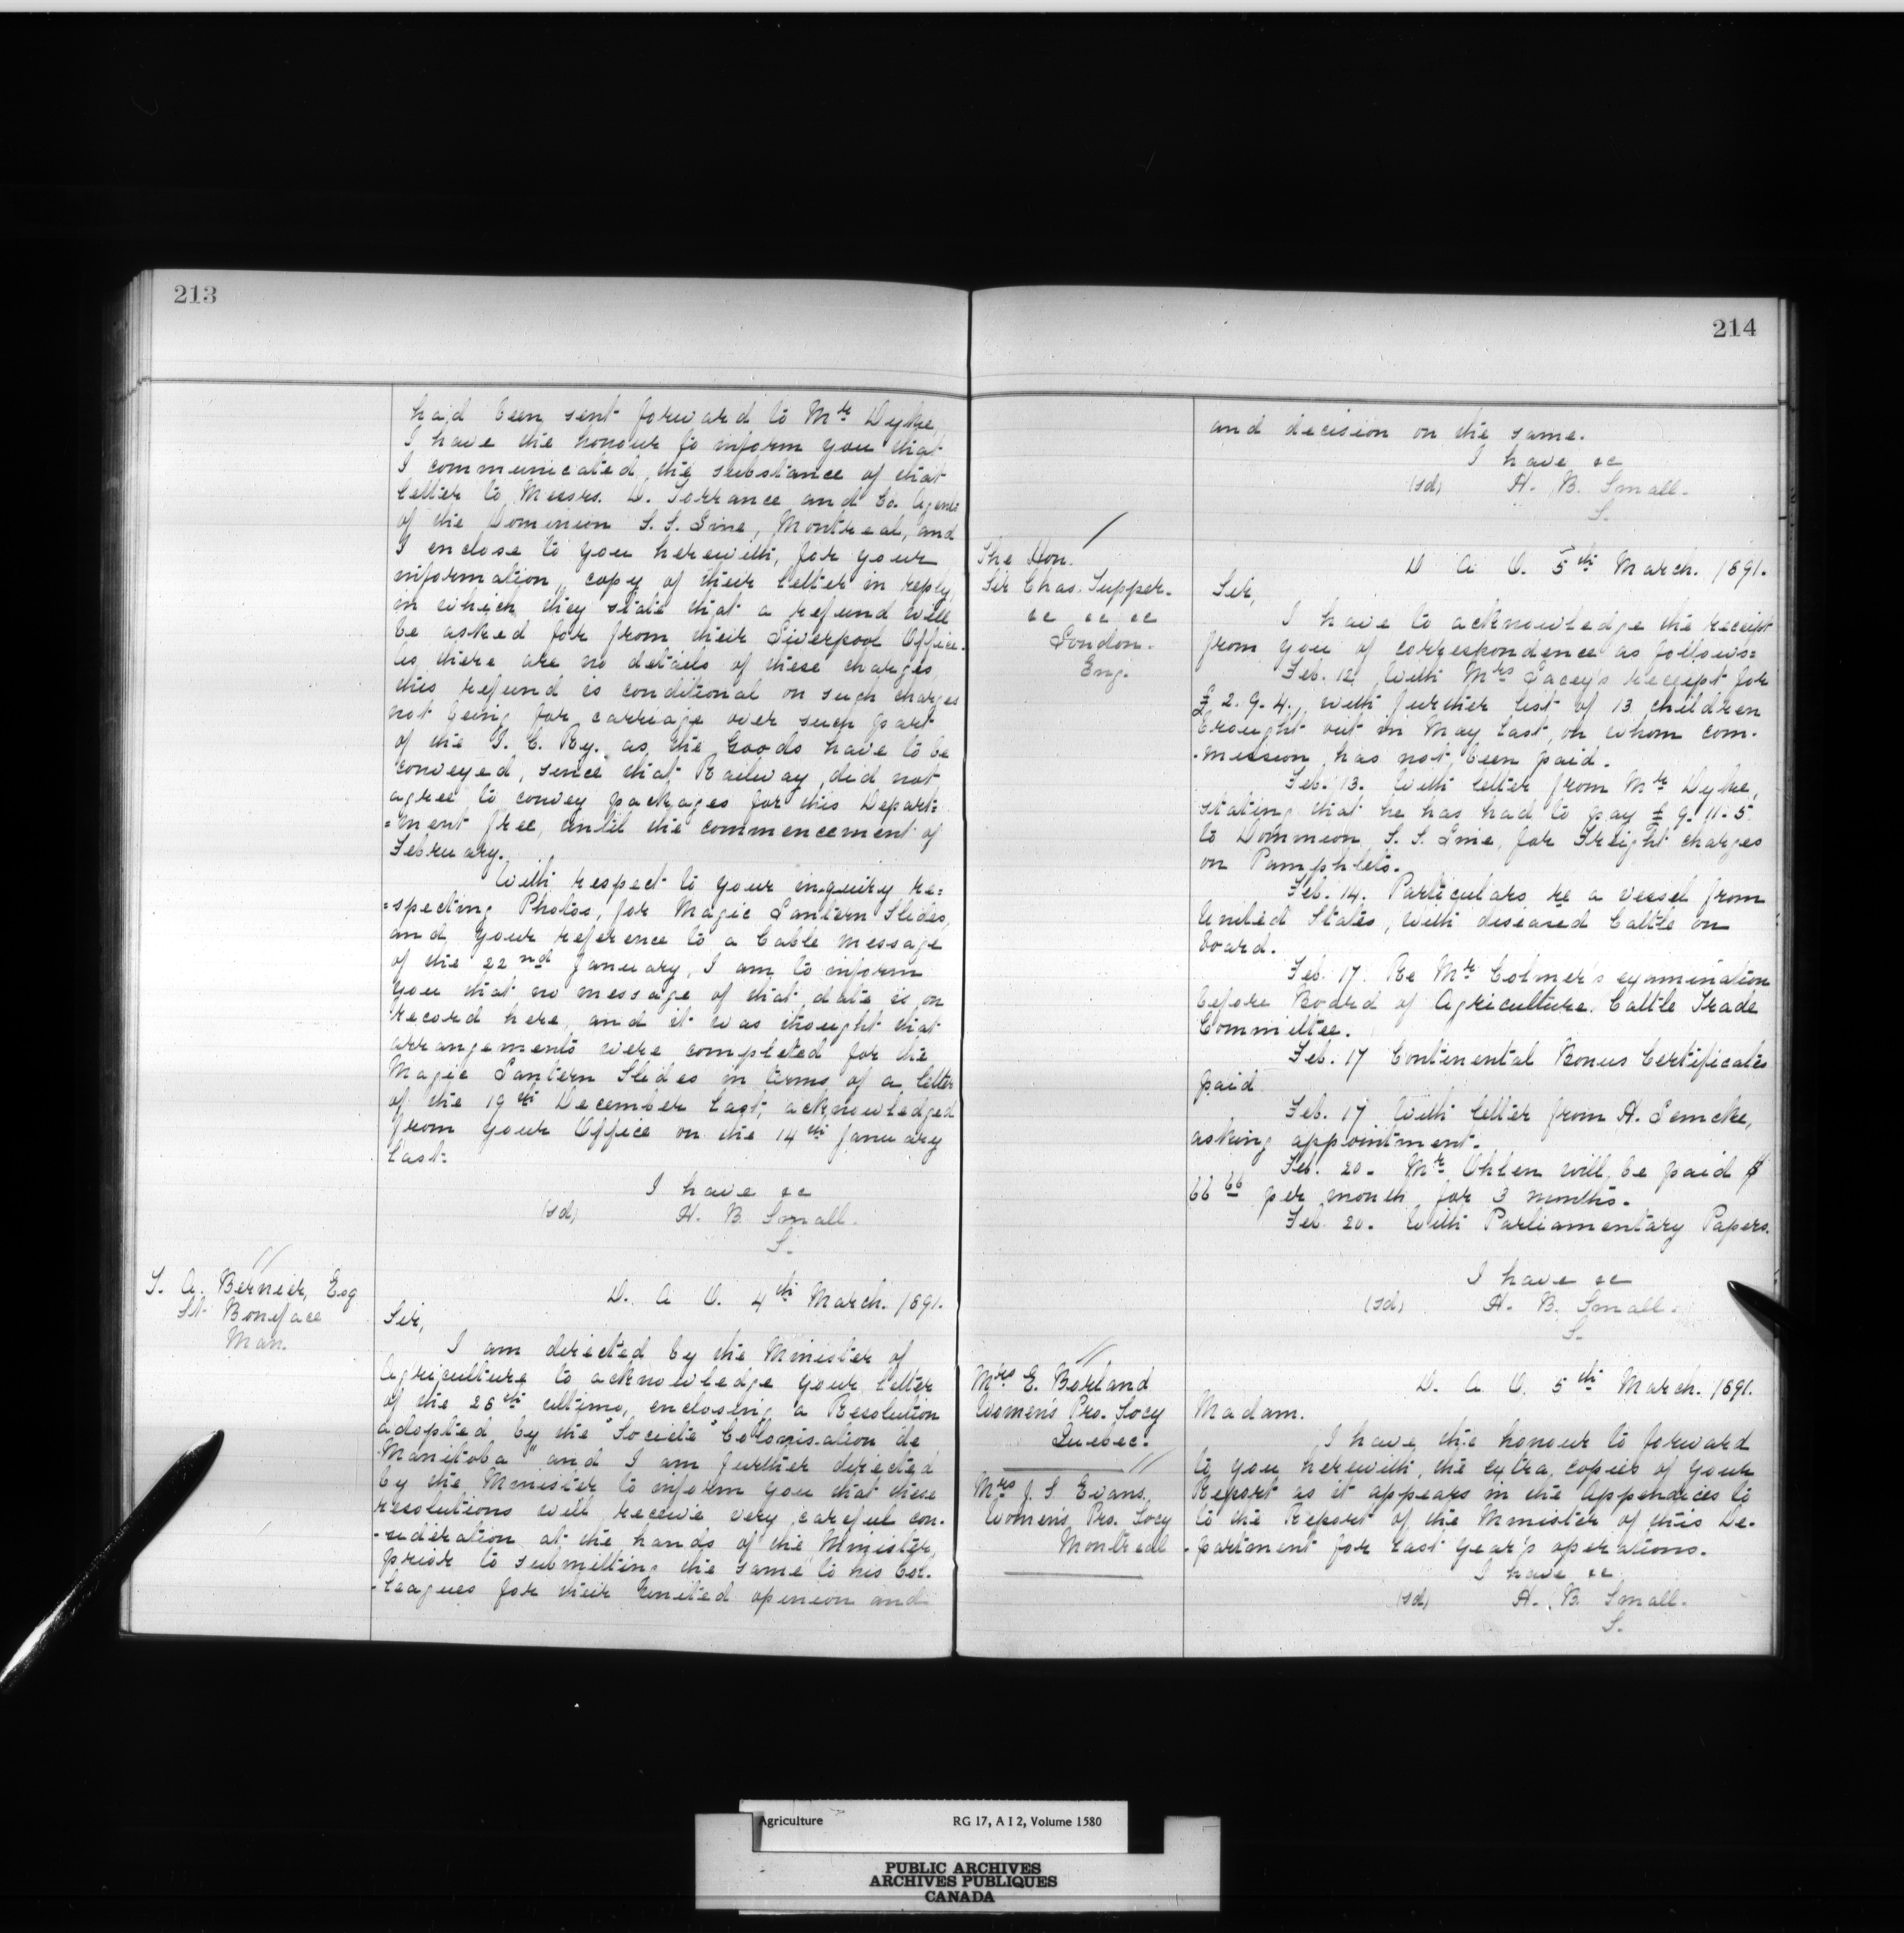 213
had been sent forward to Mr Dyke,
I have the honour to inform you that
I communicated the substance of that
letter to Messrs. D. Torrance and Co. Agents
of the Dominion S. S. Line, Montreal, and
I enclose to you herewith, for your
information, copy of their letter in reply,
in which they state that a refund will
be asked for from their Liverpool Office.
As there are no details of these charges
this refund is conditional on such charges
not being for carriage over such part
of the I. C. Ry. as the Goods have to be
conveyed, since that Railway did not
agree to convey packages for this Depart=
=ment free, until the commencement of
February.
With respect to your inquiry re=
=specting Photos, for Magic Lantern Slides,
and your reference to a Cable message
of the 22nd January, I am to inform
you that no message of that date is on
record here, and it was thought that
arrangements were completed for the
Magic Lantern Slides in terms of a letter
of the 19th December last, acknowledged
from your Office on the 14th January
last.
I have &c
(sd) H. B. Small.
S.
T. A. Bernier, Esq
St. Boniface
Man.
D. A. O. 4th March. 1891.
Sir,
I am directed by the Minister of
Agriculture to acknowledge your letter
of the 26th ultimo, enclosing a Resolution
adopted by the "Societé Colonisation de
Manitoba" and I am further directed
by the Minister to inform you that these
resolutions will receive very careful con-
-sideration at the hands of the Minister,
prior to submitting the same to his Col-
-leagues for their United opinion and
214
and decision on the same.
I have &c
(sd) H. B. Small.
S.
The Hon.
Sir Chas. Tupper.
&c &c &c
London.
Eng.
D A O. 5th March. 1891.
Sir,
I have to acknowledge the receipt
from you of correspondence as follows:
Feb. 12. With Mrs Lacey's receipt for
£ 2. 9. 4., with further list of 13 children
brought out in May last, on whom com-
-mission has not been paid.
Feb. 13. With letter from Mr Dyke,
stating that he has had to pay £ 9-11-5.
to Dominion S. S. Line, for Freight charges
on Pamphlets.
Feb. 14. Particulars re a vessel from
United States, with diseased Cattle on
board.
Feb. 17. Re Mr Colmer's examination
before Board of Agriculture Cattle Trade
Committee.
Feb. 17 Continental Bonus Certificates
paid
Feb. 17 With letter from H. Lemcke,
asking appointment.
Feb. 20. Mr Ohlen will be paid $
66 66 per month for 3 months.
Feb. 20. With Parliamentary Papers.
I have &c
(sd) H. B. Small.
S.
Mrs E. Borland
Women's Pro. Socy
Quebec.
Mrs J. S. Evans.
Women's Pro. Socy
Montreal
D. A. O. 5th March. 1891.
Madam.
I have the honour to forward
to you herewith, the extra copies of your
Report as it appears in the Appendices to
to the Report of the Minister of this De-
-partment for last year's operations.
I have &c
(sd) H. B. Small.
S.
Agriculture RG 17, A I 2, Volume 1580
PUBLIC ARCHIVES
ARCHIVES PUBLIQUES
CANADA